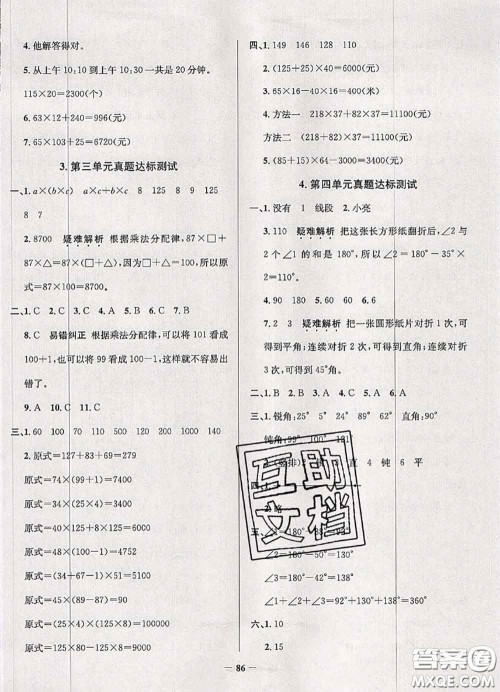 4. 他解答得对。
5. 从上午 10:10 到上午 10:30 一共是 20 分钟。
115×20=2300(个)
6. 63×12+240=996(元)
7. 65×103+25=6720(元)
3. 第三单元真题达标测试
一、1. a×(b×c)  a×(b×c)  8  125  8  125
8  7
2. 8700  疑难解析  根据乘法分配律，87×□+
87×△=87×(□+△)，因为□+△=100，所以原
式=87×100=8700。
二、1. C  2. C  3. C  4. A  5. A  6. B  7. C
8. C  易错纠正  根据乘法分配律，可以将 101 看成
100+1，也可以将 99 看成 100-1，这样就不容易出
错了。
9. A  10. A
三、1. 60  100  70  110  500  120  150  140
2. 原式=127+83+69=279
原式=74×(99+1)=7400
原式=40×125+8×125=6000
原式=48×(100-1)=4752
原式=(34+67-1)×45=4500
原式=45×(4×25)=4500
原式=(89+1)×100=9000
原式=10×(95-8)=870
原式=125×80-125×8=9000
四、1. 149  146  128  110
2. (125+25)×40=6000(元)
3. 65×16-40×16=400(米)
4. 方法一  218×37+82×37=11100(元)
方法二  (218+82)×37=11100(元)
5. (85+15)×64=6400(元)
4. 第四单元真题达标测试
一、1. 没有  1  线段  2. 小亮
3. 110  疑难解析  把这张长方形纸翻折后，∠2 与
2 个∠1 的和是 180°，所以∠2=180°-35°×
2=110°。
4. 90  180  5. ∠2  6. 120
7. 2  3  疑难解析  把一张圆形纸片对折 1 次，可
得到平角；连续对折 2 次，可得到直角；连续对折
3 次，可得到 45°角。
二、1. B  2. C  3. A  4. B  5. A  6. A
三、1. 锐角：25°  5°  24°  89°  直角：90°
钝角：99°  110°  91°
直  4  钝  6  平
四、
略
五、
∠1=180°-50°=130°
∠2=180°-42°=138°
∠3=180°-88°=92°
∠1+∠2+∠3=130°+138°+92°=360°
六、1. 10
2. 15
互助
文档
86
答案圈
MXQE.COM